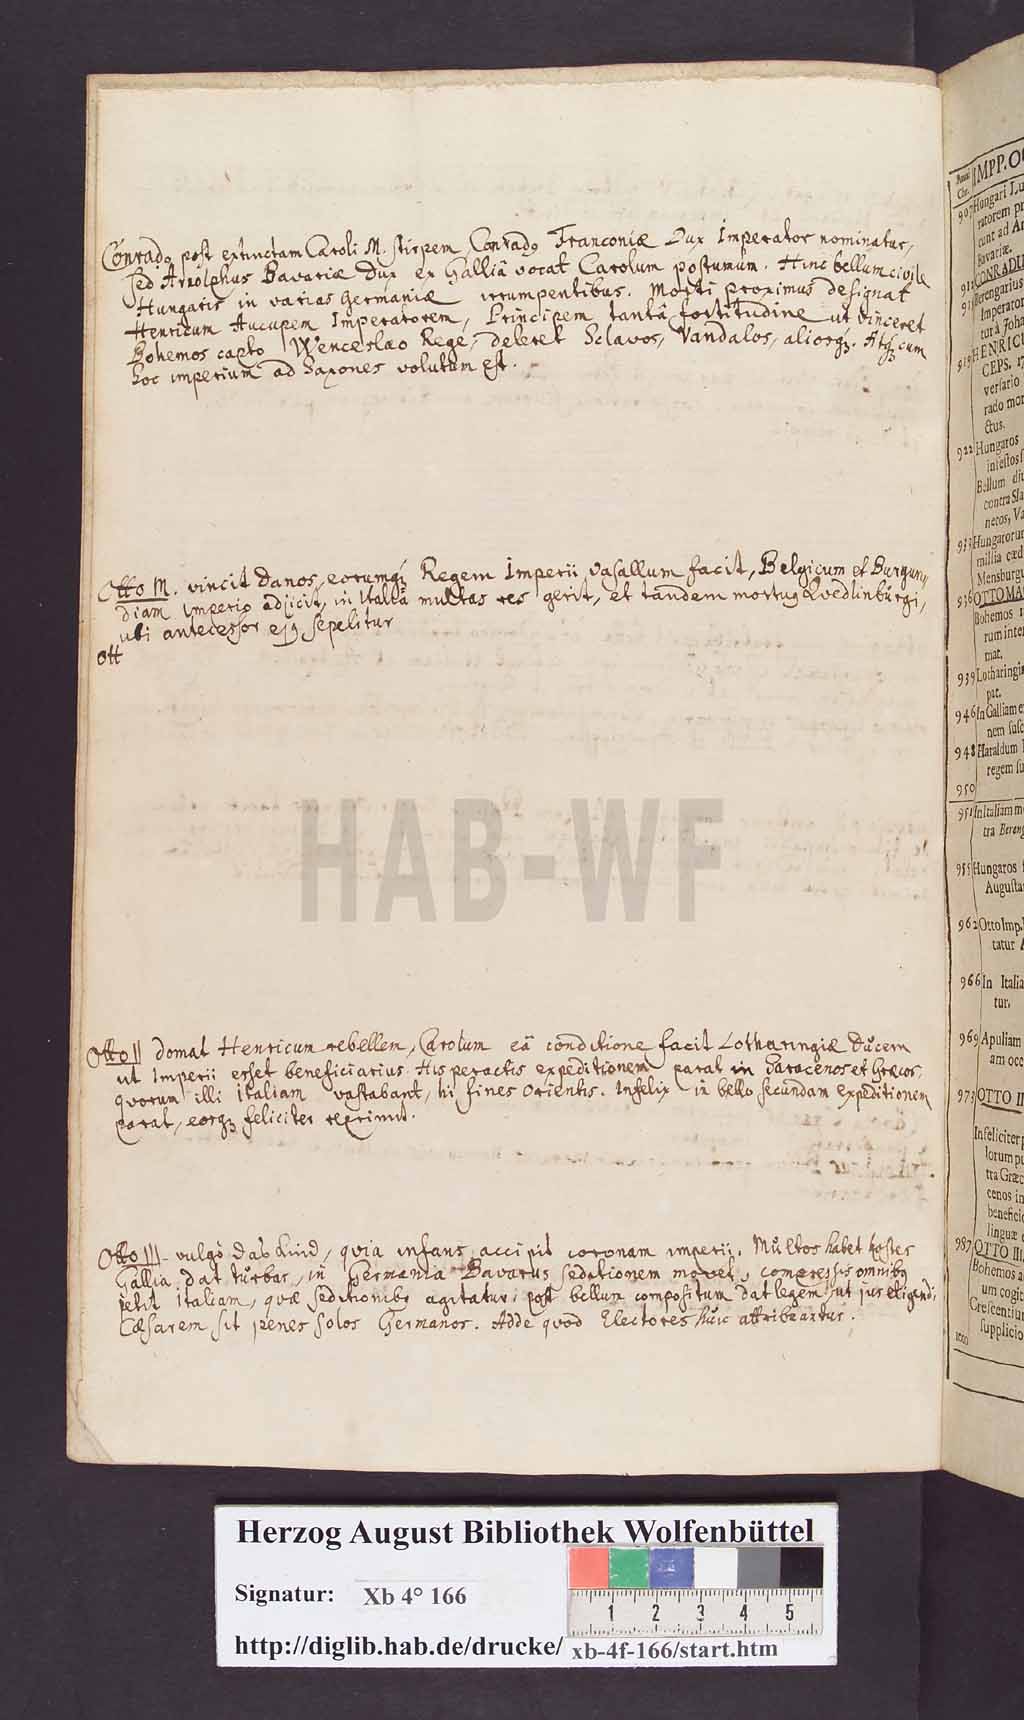 Conradꝰ post extinctam Caroli M. stirpem Conradꝰ Franconiæ Dux Imperator nominatur,
sed Arnolphus Bavariæ Dux ex Galliâ vocat Carolum postumum. Hinc bellum civile
Hungaris in varias Germaniæ irrumpentibus. Morti proximus designat
Henricum Aucupem Imperatorem, Principem tantâ fortitudine ut vinceret
Bohemos capto Wenceslao Rege, deleret Sclavos, Vandalos, aliorqꝫ. Atqꝫ cum
hoc imperium ad Saxones volutum est.
Otto M. vincit Danos, eorumqꝫ Regem Imperii vasallum facit, Belgicum et Burgun
diam imperio adjicit, in Italiâ multas res gerit, et tandem mortuꝰ Qvedlinburgi,
ubi antecessor ejꝰ sepelitur
Ott
Otto II domat Henricum rebellem, Carolum eâ conditione facit Lotharingiæ Ducem
ut Imperii esset beneficiarius. His peractis expeditionem parat in Saracenos et Græcos,
quorum illi Italiam vastabant, hi fines Orientis. Infelix in bello secundam expeditionem
parat, eorqꝫ feliciter reprimit.
Otto III vulgò das Kind, quia infans accipit coronam imperii. Multos habet hostes
Gallia dat turbas, in Germania Bavarus seditionem movet, compressis omnibꝰ
petit Italiam, quæ seditionibꝰ agitatur; post bellum compositum dat legem, ut jus eligendi
Cæsarem sit penes solos Germanos. Adde quod Electores huic attribuantur.
Chr.
IMPP. OC
907 Hungari Lu
ratorem pr
cunt ad An
Bavariæ.
912 CONRADU
Berengarius
Imperator
tur à Joha
919 HENRICU
CEPS. r
versario
rado mor
ctus.
922 Hungaros
infestos f
Bellum diu
contra Sla
netos, Va
933 Hungarorum
millia cæd
Mensburgu
936 OTTO MA
Bohemos r
rum inter
mat.
939 Lotharingia
pat.
946 In Galliam e
nem susc
948 Haraldum
regem su
950
951 In Italiam m
tra Bereng
955 Hungaros
Augusta
962 Otto Imp.
tatur
966 In Italia
tur.
969 Apuliam
am occ
973 OTTO II
Infeliciter p
lorum pu
tra Græc
cenos in
beneficio
linguæ
987 OTTO III
Bohemos a
um cogit
Crescentium
supplicio
1000
HAB-WF
Herzog August Bibliothek Wolfenbüttel
Signatur: Xb 4° 166
1 2 3 4 5
http://diglib.hab.de/drucke/ xb-4f-166/start.htm